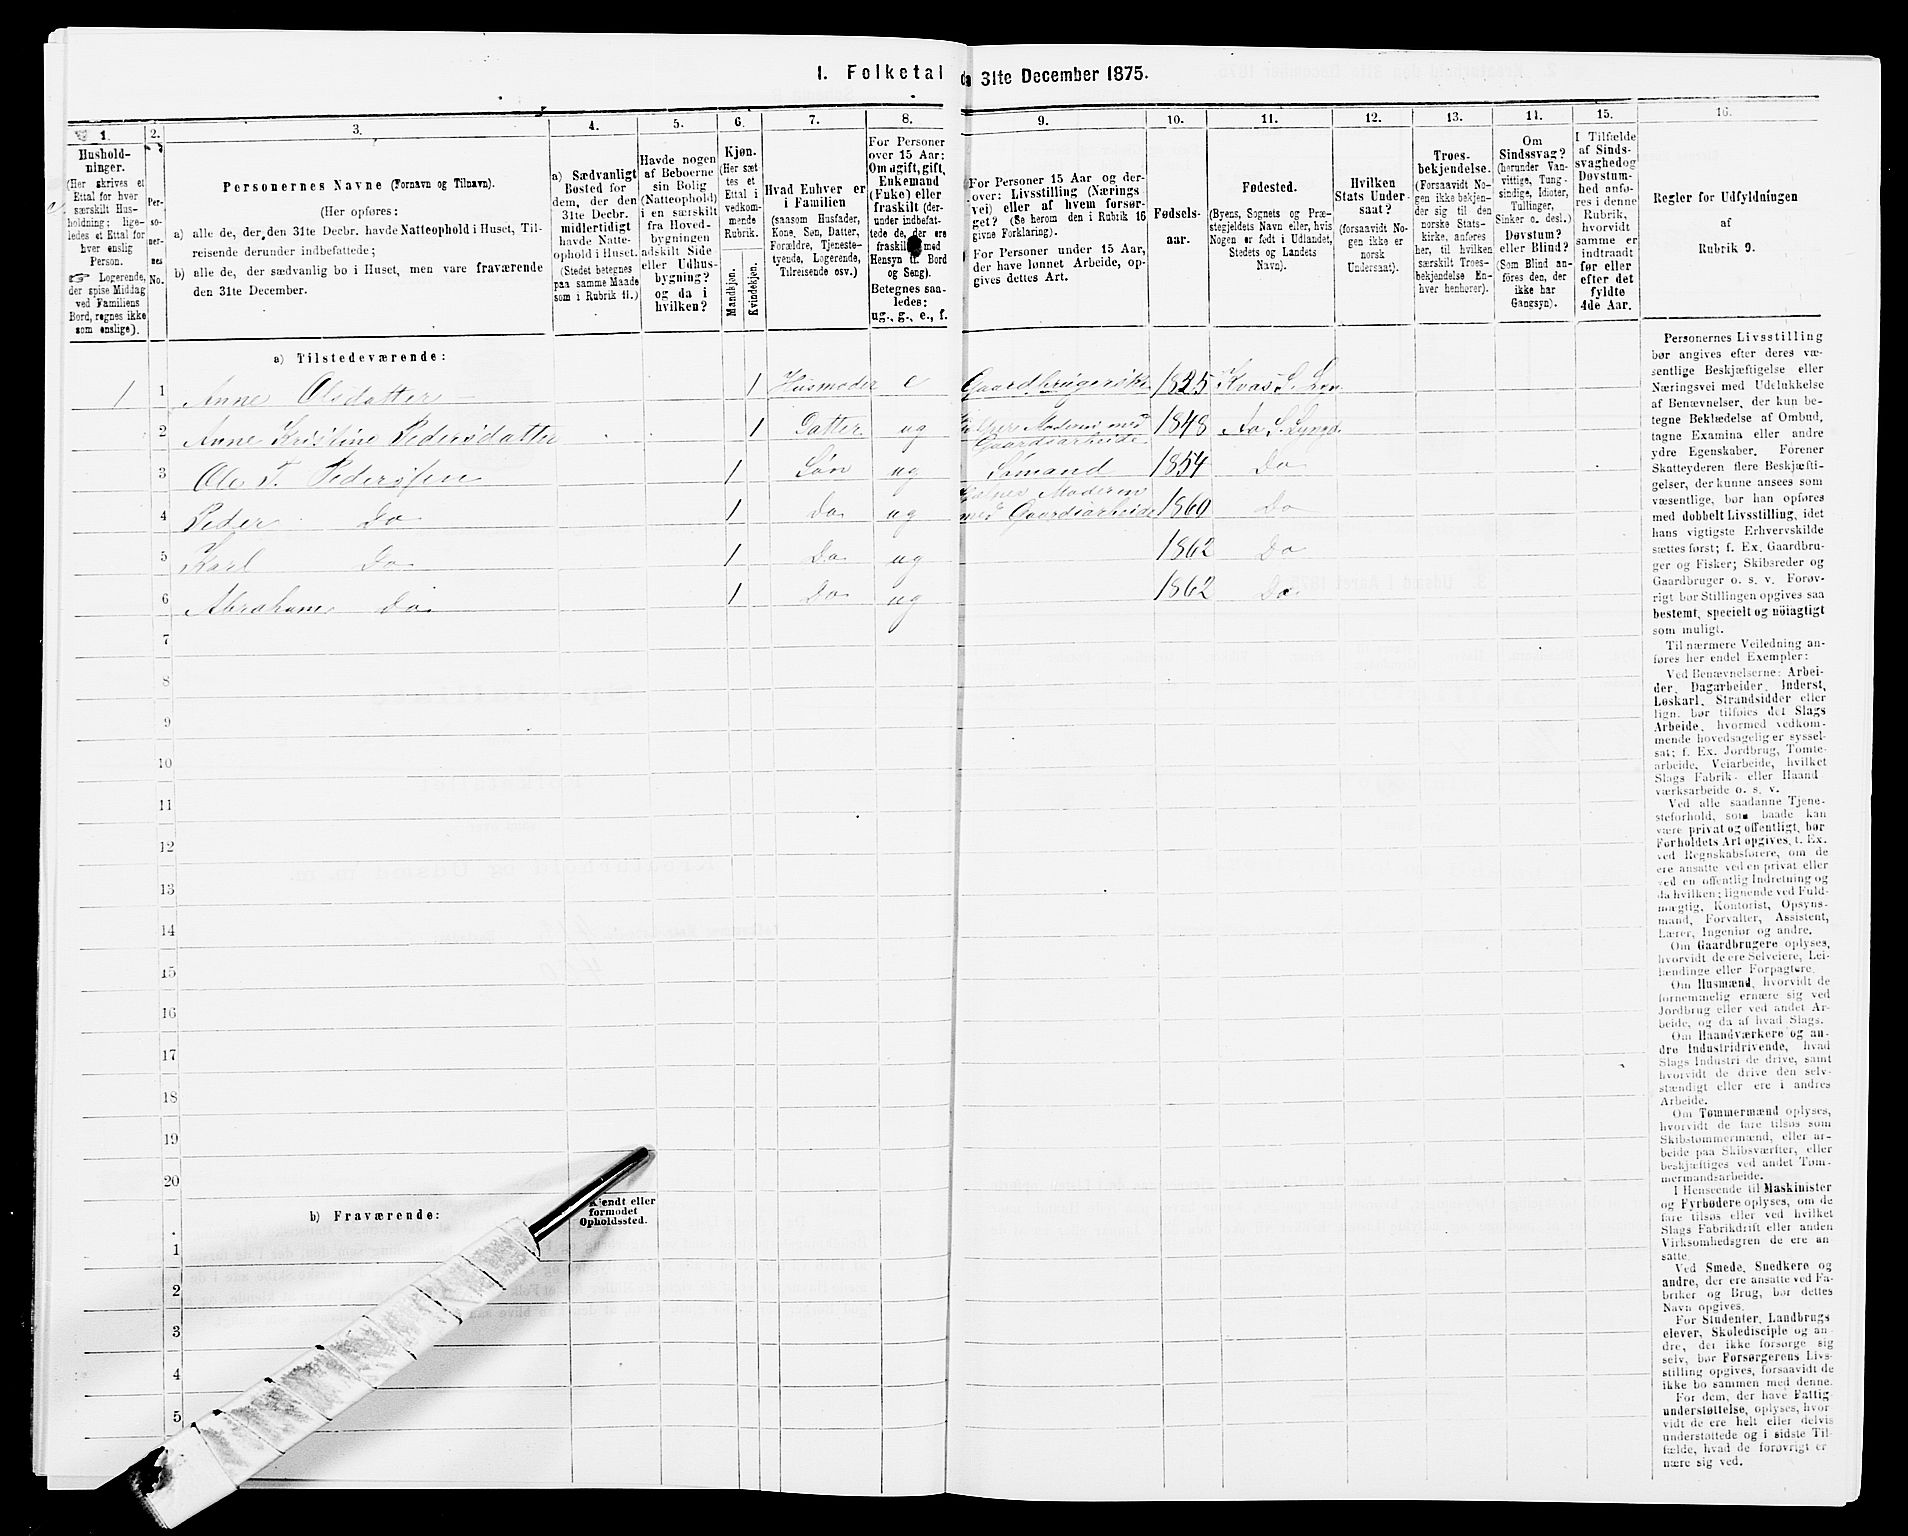 1. Folketal
da 31te December 1875.
1.
2.
3.
4.
5.
6.
7.
8.
9.
10.
11.
12.
13.
14.
15.
16.
Hushold-
ninger.
(Her skrives et
Ettal for hver
særskilt Hus-
holdning; lige-
ledes et Ettal for
hver enslig
Person.
☞ Logerende,
der spise Middag
ved Familiens
Bord, regnes ikke
som enslige).
Per-
so-
ner-
nes
No.
Personernes Navne (Fornavn og Tilnavn).
(Her opføres:
a) alle de, der den 31te Decbr. havde Natteophold i Huset, Til-
reisende derunder indbefattede;
b) alle de, der sædvanlig bo i Huset, men vare fraværende
den 31te December.
a) Sædvanligt
Bosted for
dem, der den
31te Decbr.
midlertidigt
havde Natte-
ophold i Huset.
(Stedet betegnes
paa samme Maade
som i Rubrik 11.)
Havde nogen
af Beboerne
sin Bolig
(Natteophold)
i en særskilt
fra Hoved-
bygningen
adskilt Side
eller Udhus-
bygning?
og da i
hvilken?
Kjøn.
(Her sæt
tes et
Ettal i
vedkom-
mende
Rubrik.
Mandkjøn.
Kvindekjøn.
Hvad Enhver er
i Familien
(saasom Husfader,
Kone, Søn, Datter,
Forældre, Tjeneste-
tyende, Logerende,
Tilreisende osv.)
For Personer
over 15 Aar:
Om ugift, gift,
Enkemand
(Enke) eller
fraskilt (der-
under indbefat-
tede de, der ere
fraskilt med
Hensyn til Bord
og Seng).
Betegnes saa-
ledes:
ug., g., e., f.
For Personer 15 Aar og der-
over: Livsstilling (Nærings
vei) eller af hvem forsør-
get? (Se herom den i Rubrik 16
givne Forklaring).
For Personer under 15 Aar,
der have lønnet Arbeide, op-
gives dettes Art.
Fødsels-
aar.
Fødested.
(Byens, Sognets og Præ-
stegjeldets Navn eller, hvis
Nogen er født i Udlandet,
Stedets og Landets
Navn).
Hvilken
Stats Under-
saat?
(forsaavidt No-
gen ikke er
norsk
Undersaat).
Troes-
bekjendelse.
(Forsaavidt No-
gen ikke bekjen-
der sig til den
norske Stats-
kirke, anføres
her, til hvilken
særskilt Troes-
bekjendelse En-
hver henhører).
Om
Sindssvag?
(herunder Van-
vittige, Tung-
sindige, Idioter,
Tullinger,
Sinker o. desl.)
Døvstum?
eller Blind?
(Som Blind an-
føres den, der
ikke har
Gangsyn).
I Tilfælde
af Sinds-
svaghed og
Døvstum-
hed anfø-
res i denne
Rubrik,
hvorvidt
samme er
indtraadt
før eller
efter det
fyldte
4de Aar.
Regler for Udfyldningen
af
Rubrik 9.
a) Tilstedeværende:
1 1 Anne Olsdatter 1 Husmoder e Gaardbrugerske 1825 Kvas S.
2 Anne Kristine Pedersdatter 1 Datter ug Moderen med Gaardsarbeide 1848 Aa S. Lyngd.
3 Ole T. Pedersen 1 Søn ug Sømand 1854 Do
4 Peder Do 1 Do ug Hjelper Moderen med Gaardsarbeide 1860 Do
5 Karl Do 1 Do ug 1862 Do
6 Abraham Do 1 Do ug 1862 Do
7
8
9
10
11
12
13
14
15
16
17
18
19
20
b) Fraværende:
Kjendt eller
formodet
Opholdssted.
1
2
3
4
5
Personernes Livsstilling
bør angives efter deres væ-
sentlige Beskjæftigelse eller
Næringsvei med Udelukkelse
af Benævnelser, der kun be-
tegne Beklædelse af Ombud,
tagne Examina eller andre
ydre Egenskaber. Forener
Skatteyderen flere Beskjæfti-
gelser, der kunne ansees som
væsentlige, bør han opføres
med dobbelt Livsstilling, idet
hans vigtigste Erhvervskilde
sættes først; f. Ex. Gaardbru-
ger og Fisker; Skibsreder og
Gaardbruger o. s. v. Forøv-
rigt bør Stillingen opgives saa
bestemt, specielt og nöiagtigt
som muligt.
Til nærmere Veiledning an-
føres her endel Exempler:
Ved Benævnelserne: Arbei-
der, Dagarbeider, Inderst,
Løskarl, Strandsidder eller
lign. bør tilføies det Slags
Arbeide, hvormed vedkom-
mende hovedsagelig er syssel-
sat; f. Ex. Jordbrug, Tomte-
arbeide, Veiarbeide, hvilket
Slags Fabrik- eller Haand
værksarbeide o. s. v.
Ved alle saadanne Tjene-
steforhold, som baade kan
være privat og offentligt, bør
Forholdets Art opgives, t. Ex.
ved Regnskabsførere, om de
ere ansatte ved en privat eller
ved en offentlig Indretning og
da hvilken; lignende ved Fuld-
mægtig, Kontorist, Opsyns-
mand, Forvalter, Assistent,
Lærer, Ingeniør og andre.
Om Gaardbrugere oplyses,
hvorvidt de ere Selveiere, Lei-
lændinge eller Forpagtere.
Om Husmænd, hvorvidt de
fornemmelig ernære sig ved
Jordbrug eller ved andet Ar-
beide, og da af hvad Slags.
Om Haandværkere og an-
dre Industridrivende, hvad
Slags Industri de drive, samt
hvorvidt de drive den selv-
stændigt eller ere i andres
Arbeide.
Om Tømmermænd oplyses,
hvorvidt de fare tilsøs som
Skibstømmermænd, eller ar-
beide paa Skibsværfter, eller
beskjæftiges ved andet Tøm-
mermandsarbeide.
I Henseende til Maskinister
og Fyrbødere oplyses, om de
fare tilsøs eller ved hvilket
Slags Fabrikdrift eller anden
Virksomhedsgren de ere an-
satte.
Ved Smede, Snedkere og
andre, der ere ansatte ved Fa-
briker og Brug, bør dettes
Navn opgives.
For Studenter, Landbrugs
elever, Skoledisciple og an-
dre, der ikke forsørge sig
selv, bør Forsørgerens Livs-
stilling opgives, forsaavidt de
ikke bo sammen med denne.
For dem, der have Fattig
understøttelse, oplyses, hvor
vidt de ere helt eller delvis
understøttede og i sidste Til-
fælde, hvad de forøvrigt er
nære sig ved.